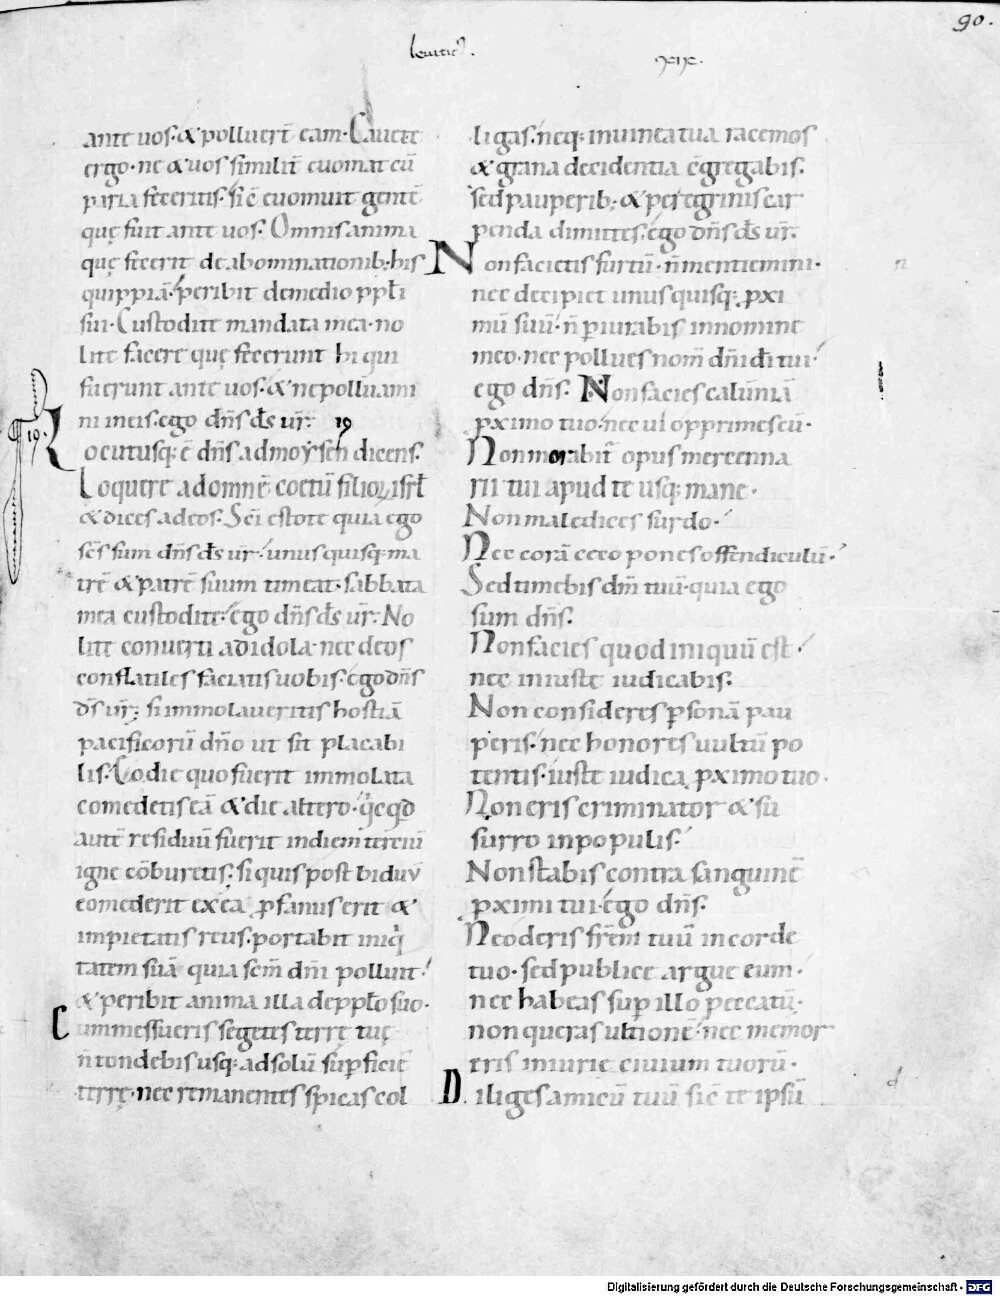 90.
leuitic9.
ante uos· & polluert̄ eam· Cauete
ergo· ne & uos similit̄ euomat cū
paria feceritis· sic̄ euomuit gentē
quę fuit ante uos· Omnis anima
quę fecerit de abominationib; his
quippiā· peribit de medio ppl̄i
sui· Custodite mandata mea· no
lite facere quę fecerunt hi qui
fuerunt ante uos· & ne polluami
ni in eis· ego dn̄s ds̄ ur̄· 19
19· Locutusq; ē dn̄s ad moysen dicens·
Loquere ad omnē coetū filioꝝ isrl̄
& dices ad eos· Sci̅ estote quia ego
sc̄s sum dn̄s ds̄ ur̄· unusquisq; ma
trē & patrē suum timeat· sabbata
mea custodite· ego dn̄s ds̄ ur̄· No
lite conuerti ad idola· nec deos
conflatiles faciatis uobis· ego dn̄s
ds̄ ur̄· si immolaueritis hostiā
pacificorū dn̄o ut sit placabi
lis· Eo die quo fuerit immolata
comedetis eā & die altero· q̇cqd̄
autē residuū fuerit in diem tertiū
igne cōburetis· si quis post biduū
comederit ex ea, ꝓfanus erit &
impietatis reus· portabit iniq̇
tatem suā quia scm̄ dn̄i polluit·
& peribit anima illa de pplo suo·
Cum messueris segetes terrę tuę
n̄ tondebis usq; ad solū suꝑficiē
terrę· nec remanentes spicas col
ligas· neq; in uinea tua racemos
& grana decidentia cōgregabis·
sed pauperib; & peregrinis car
penda dimittes· ego dn̄s ds̄ ur̄·
Non facietis furtū· n̄ mentiemini·
nec decipiet unusquisq; ꝓxi
mū suū· n̄ ꝑiurabis in nomine
meo· nec pollues nom̄ dn̄i dī tui·
ego dn̄s· Non facies calūniā
ꝓximo tuo· nec ui opprimes eū·
Non morabit̄ opus mercenna
rii tui apud te usq; mane·
Non maledices surdo·
Nec corā ceco pones offendiculū·
Sed timebis dn̄m tuū· quia ego
sum dn̄s·
Non facies quod iniquū est·
nec iniuste iudicabis·
Non consideres ꝑsonā pau
peris· nec honores uultū po
tentis· iuste iudica ꝓximo tuo·
Non eris criminator & su
surro in populis·
Non stabis contra sanguinē
ꝓximi tui· ego dn̄s·
Ne oderis frēm tuū in corde
tuo· sed publice argue eum·
nec habeas suꝑ illo peccatū·
non queras ultionē· nec memor
eris iniurie ciuium tuorū·
Diliges amicū tuū sic̄ te ipsū
Digitalisierung gefördert durch die Deutsche Forschungsgemeinschaft - DFG